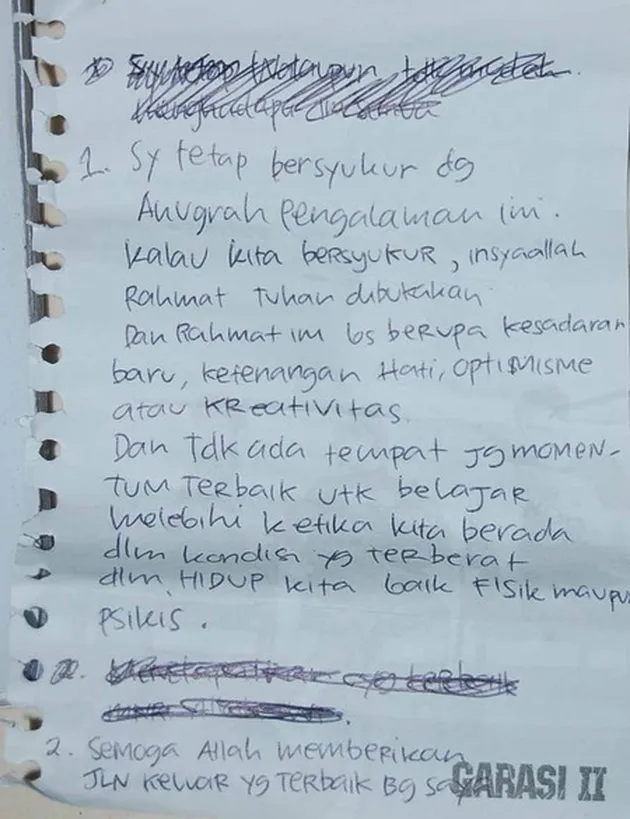 1. Sy tetap bersyukur dg
Anugrah Pengalaman ini.
Kalau kita bersyukur, insyaallah
Rahmat Tuhan dibukakan
Dan Rahmat ini bs berupa kesadaran
baru, ketenangan Hati, optimisme
atau kreativitas.
Dan Tdk ada tempat jg momen-
tum terbaik utk belajar
melebihi ketika kita berada
dlm kondisi yg terberat
dlm HIDUP kita baik fisik maupu
psikis.
2.
2. Semoga Allah memberikan
JLN keluar yg terbaik Bg saya
GARASI II